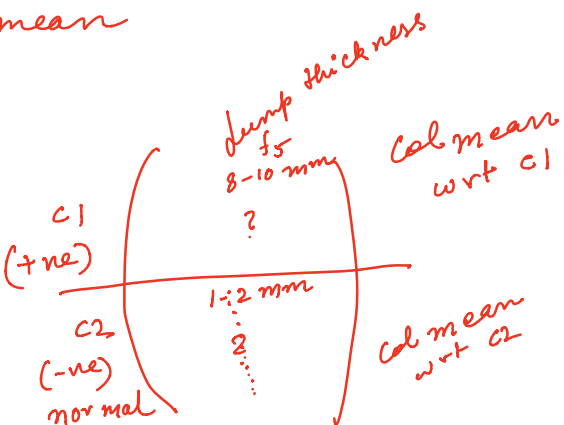 mean
lump thickness
f5
8-10 mm
?
c1
(+ve)
Col mean
wrt c1
1-2 mm
?
c2
(-ve)
normal
Col mean
wrt c2